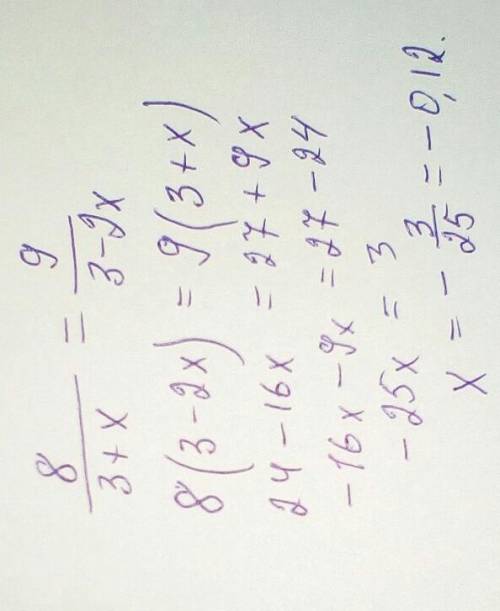 8/(3+x) = 9/(3-2x)
8(3-2x) = 9(3+x)
24-16x = 27+9x
-16x-9x = 27-24
-25x = 3
x = -3/25 = -0,12.